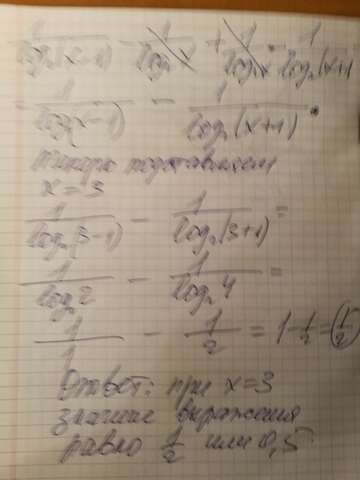 1/log₂(x-1) - 1/log₂x + 1/log₂x - 1/log₂(x+1)
1/log₂(x-1) - 1/log₂(x+1).
теперь подставляем
x = 3
1/log₂(3-1) - 1/log₂(3+1) =
1/log₂2 - 1/log₂4 =
1/1 - 1/2 = 1 - 1/2 = 1/2
Ответ: при x=3
значение выражения
равно 1/2 или 0,5